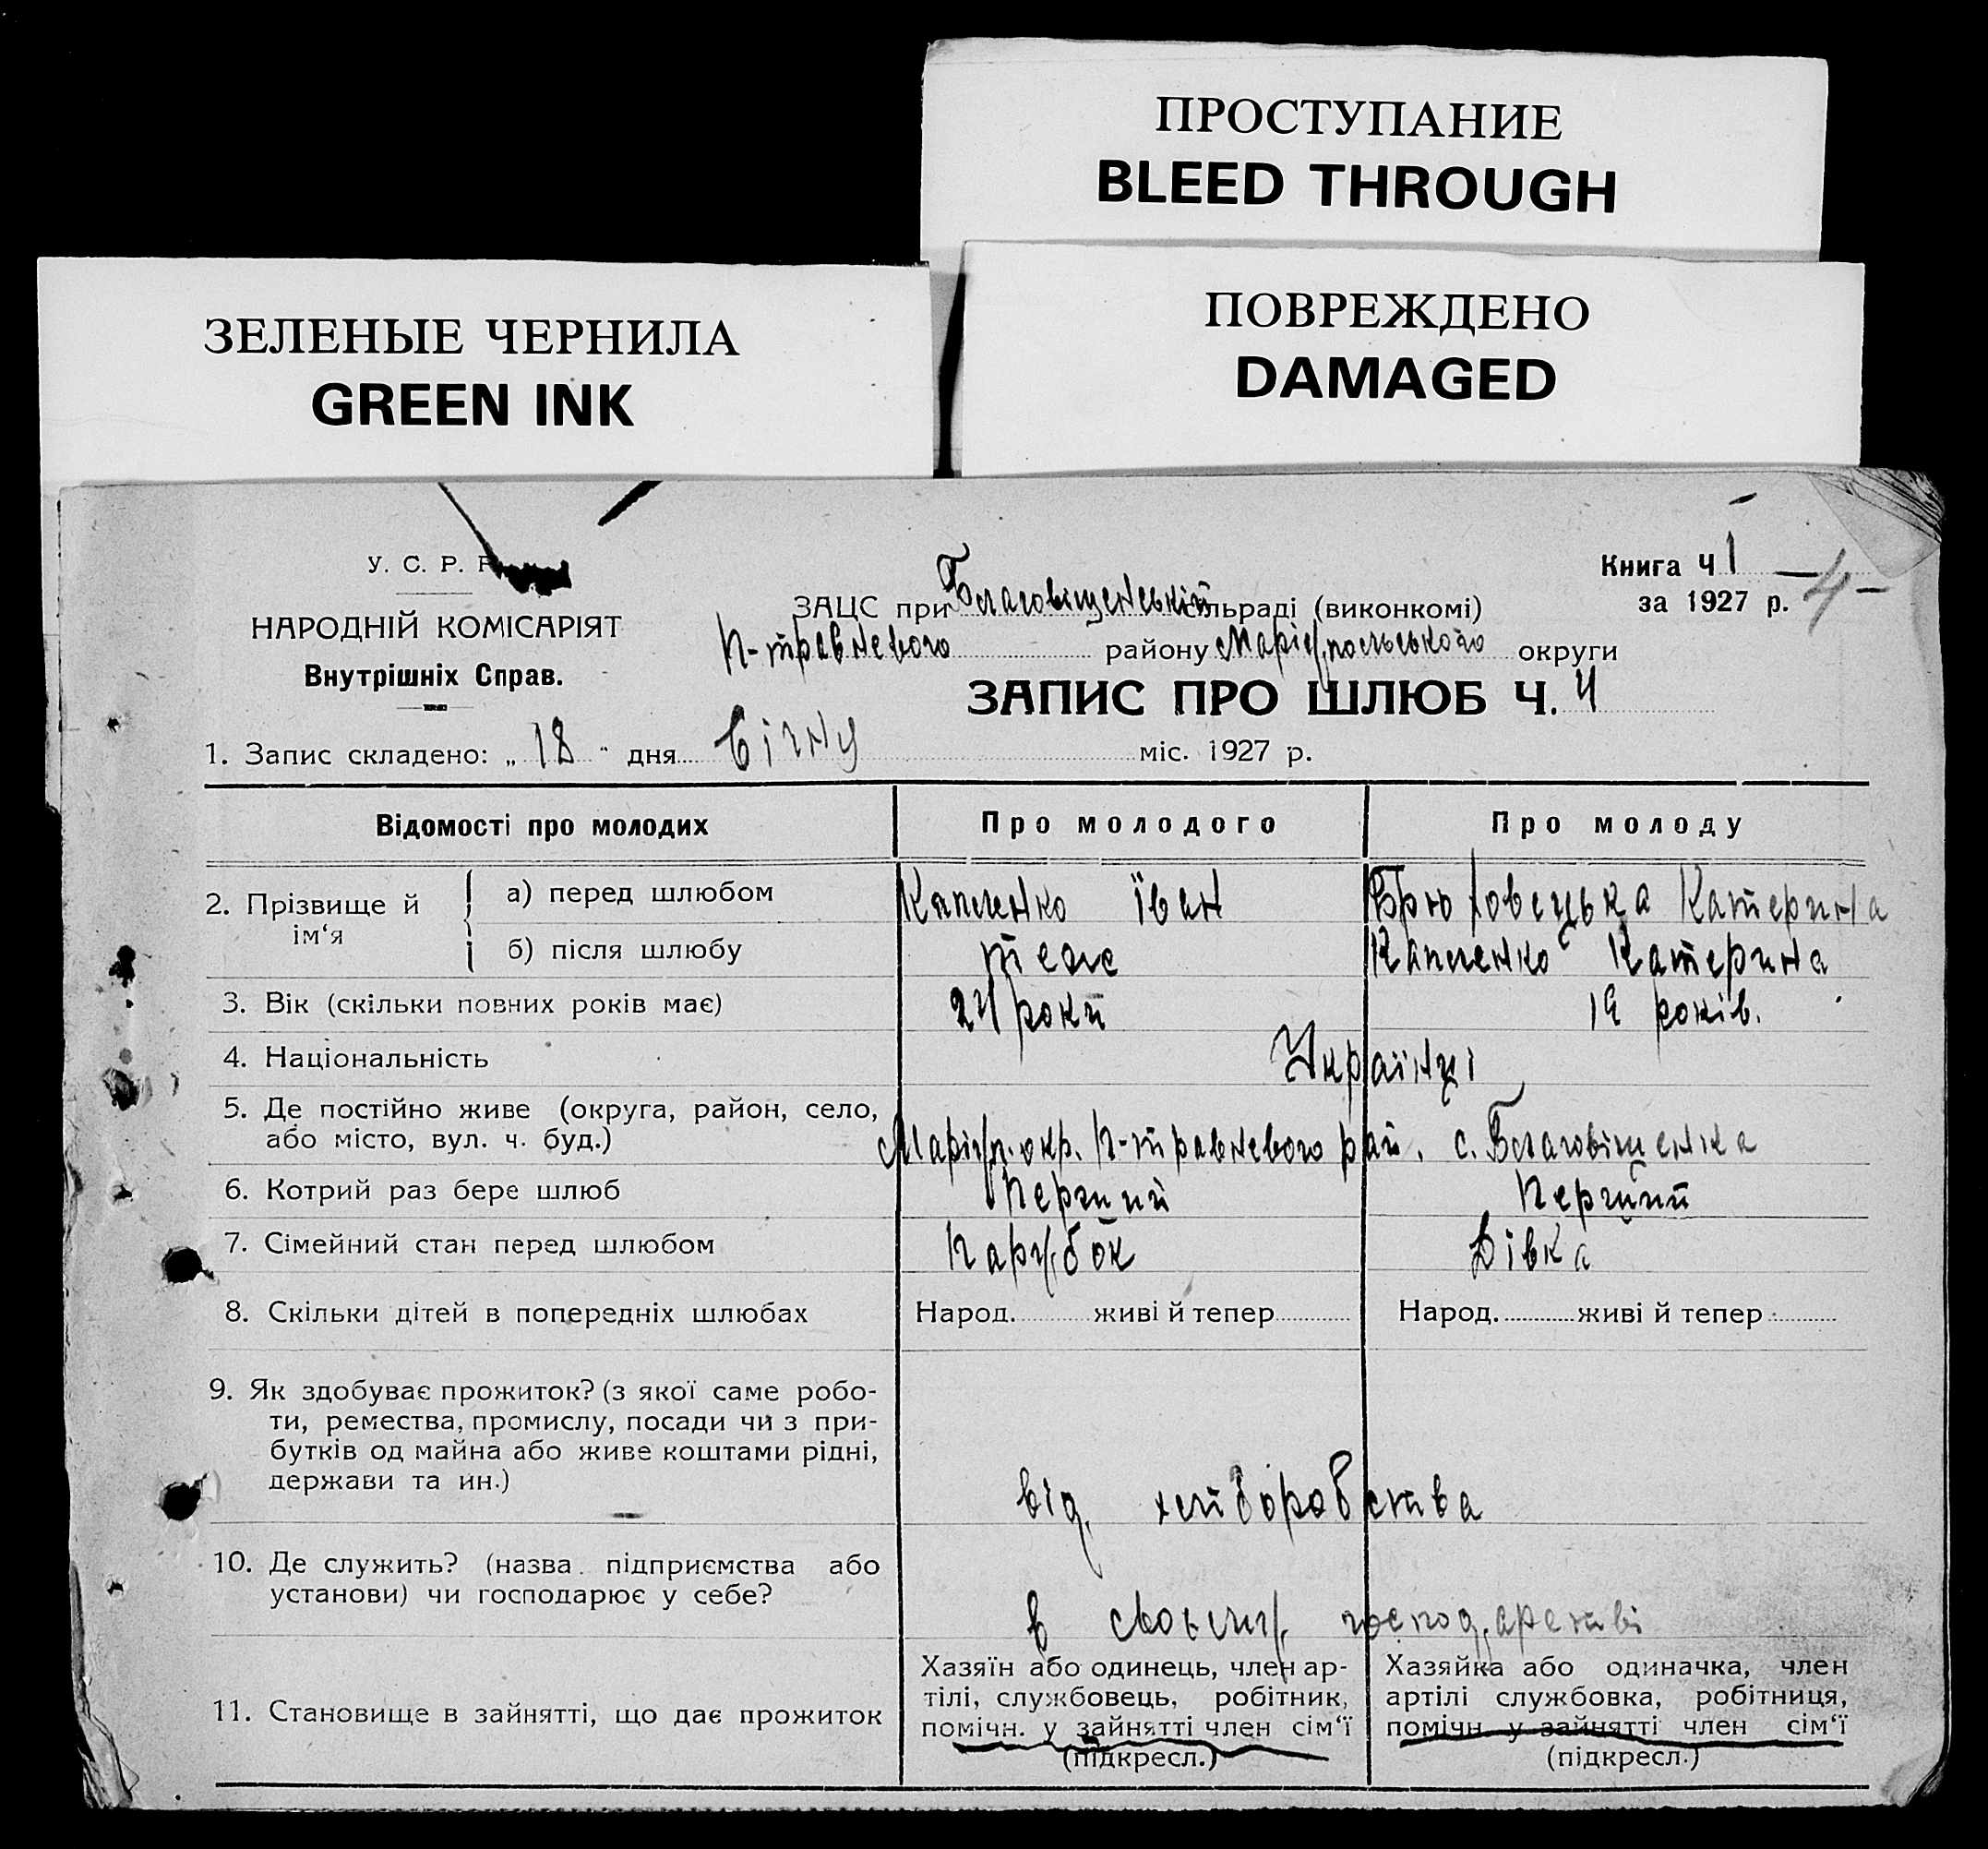 ПРОСТУПАНИЕ
BLEED THROUGH
ЗЕЛЕНЫЕ ЧЕРНИЛА
GREEN INK
ПОВРЕЖДЕНО
DAMAGED
У. С. Р. Р.
НАРОДНІЙ КОМІСАРІЯТ
Внутрішніх Справ.
Книга Ч 1
за 1927 р. 4
ЗАЦС при Благовіщенській сільраді (виконкомі)
П-травневого району Маріупольського округи
ЗАПИС ПРО ШЛЮБ Ч. 4
1. Запис складено: „ 18 " дня Січня міс. 1927 р.
Відомості про молодих Про молодого Про молоду
2. Прізвище й ім‘я
а) перед шлюбом Капленко Іван Брюховецька Катерина
б) після шлюбу теж Капленко Катерина
3. Вік (скільки повних років має) 24 роки 19 років.
4. Національність Українці
5. Де постійно живе (округа, район, село,
або місто, вул. ч. буд.) Маріуп. окр. П-травневого рай. с. Благовіщенка
6. Котрий раз бере шлюб Перший Перший
7. Сімейний стан перед шлюбом Парубок Дівка
8. Скільки дітей в попередніх шлюбах Народ. живі й тепер Народ. живі й тепер
9. Як здобуває прожиток? (з якої саме робо-
ти, ремества, промислу, посади чи з при-
бутків од майна або живе коштами рідні,
держави та ин.)
від хліборобства
10. Де служить? (назва підприємства або
установи) чи господарює у себе?
в своєму господарстві
11. Становище в зайнятті, що дає прожиток
Хазяїн або одинець, член ар-
тілі, службовець, робітник,
помічн. у зайнятті член сім‘ї
(підкресл.)
Хазяйка або одиначка, член
артілі службовка, робітниця,
помічн у зайнятті член сім‘ї
(підкресл.)